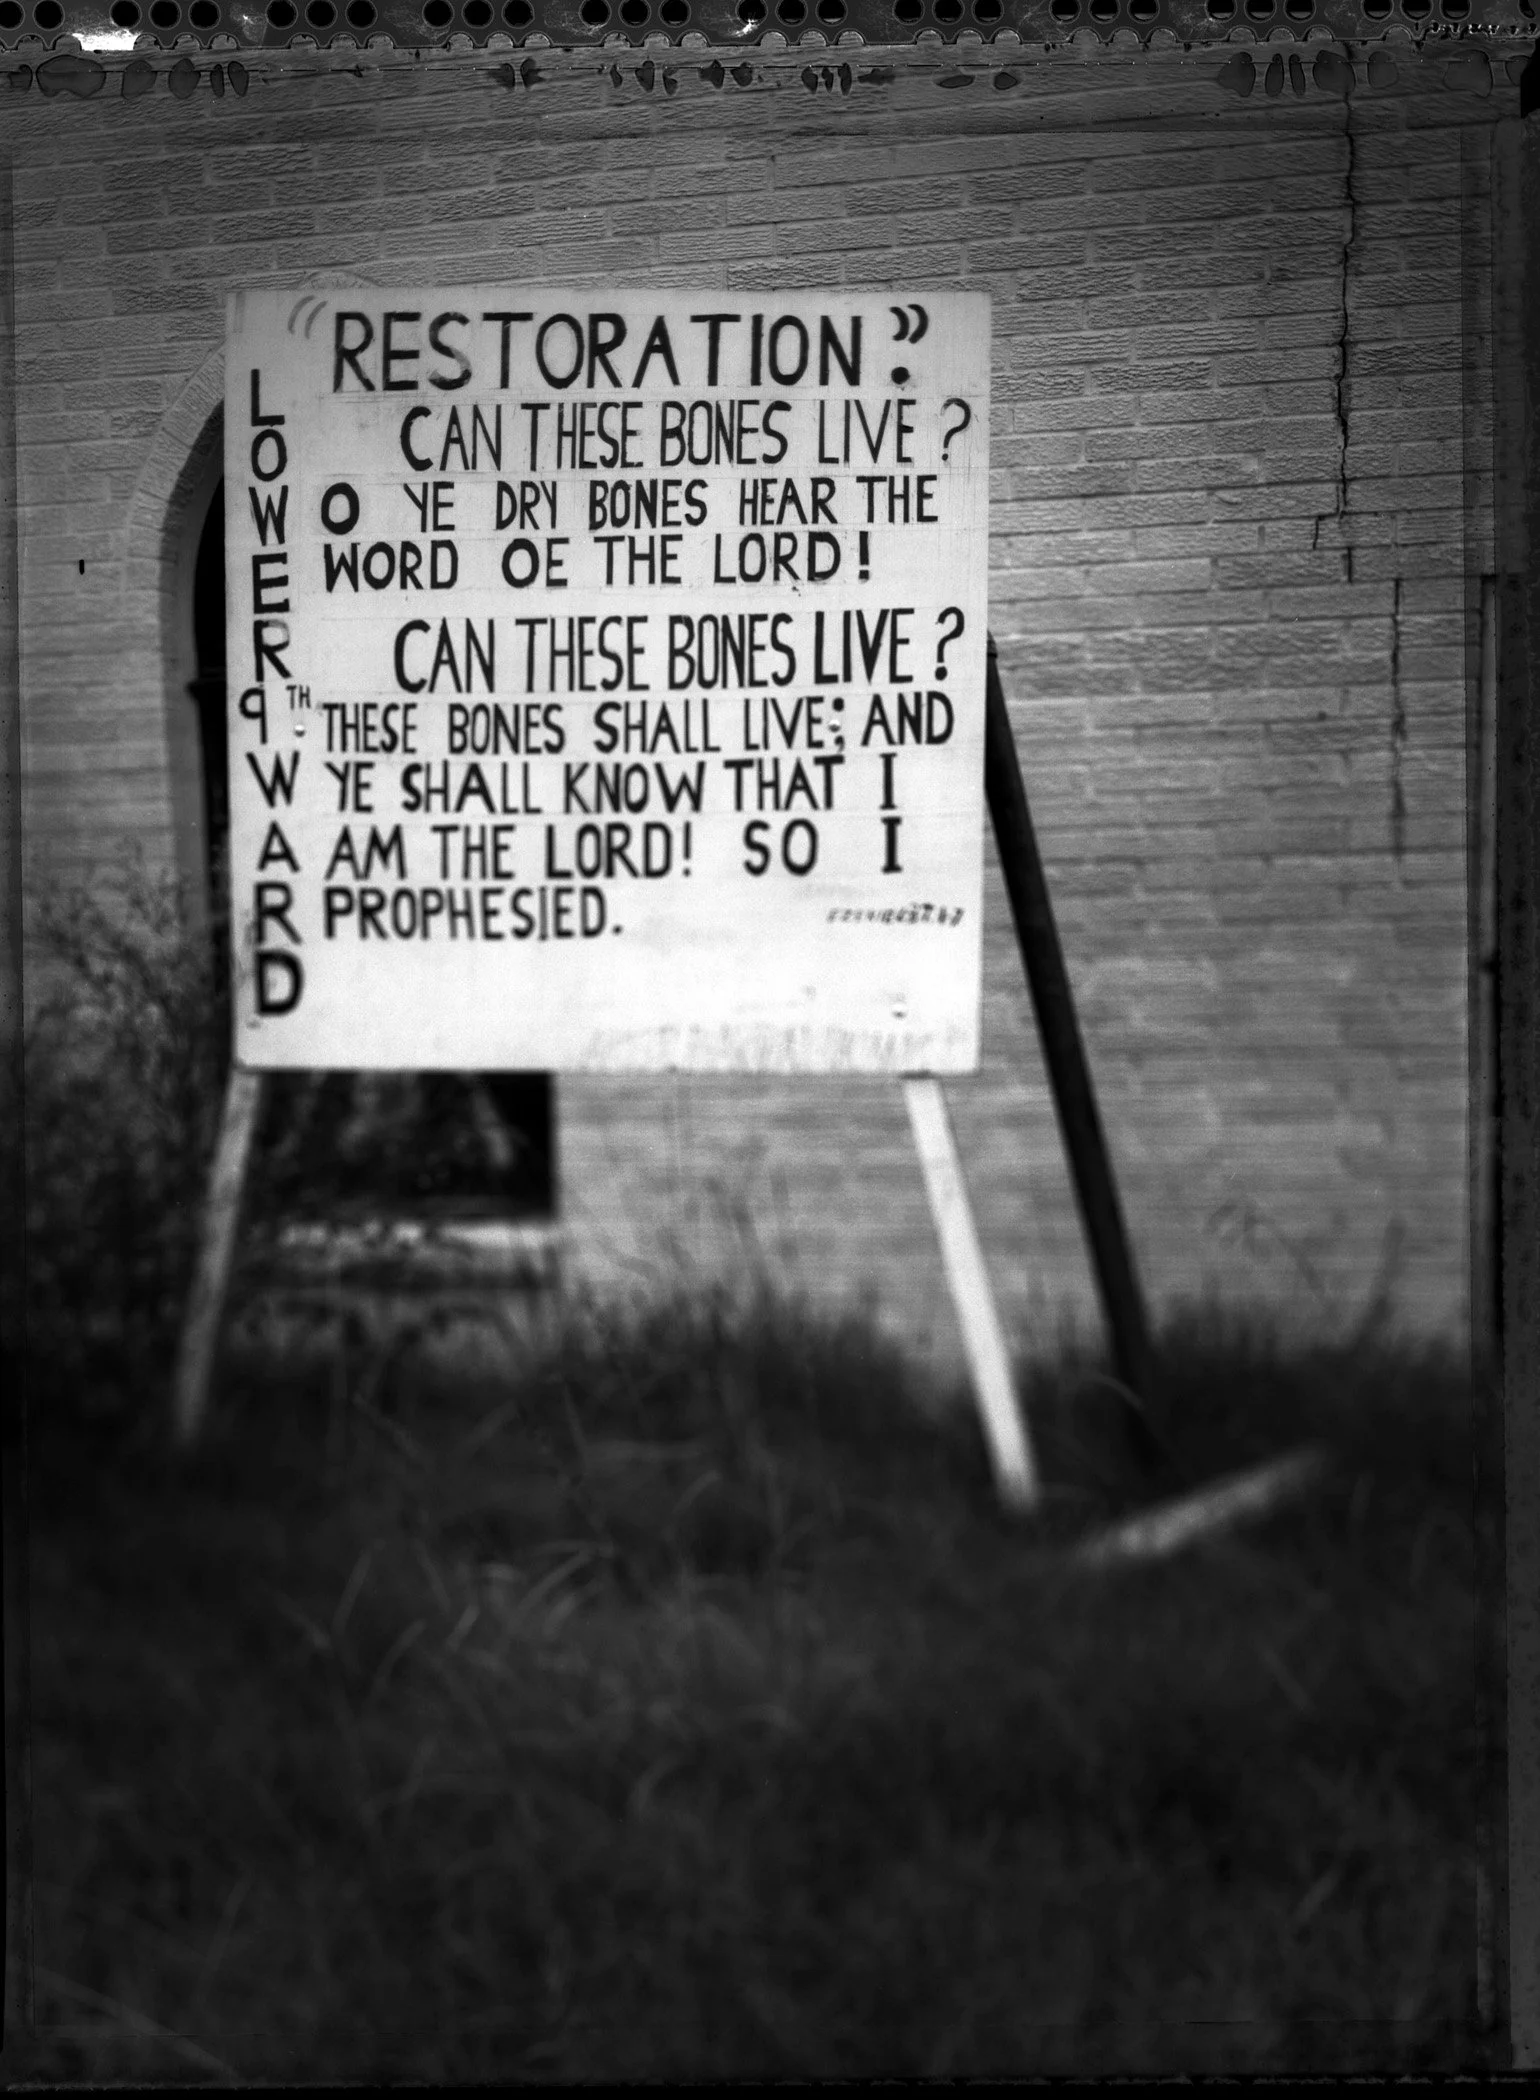 “RESTORATION”.
CAN THESE BONES LIVE?
O YE DRY BONES HEAR THE
WORD OE THE LORD!
CAN THESE BONES LIVE?
THESE BONES SHALL LIVE; AND
YE SHALL KNOW THAT I
AM THE LORD! SO I
PROPHESIED.
LOWER 9TH WARD